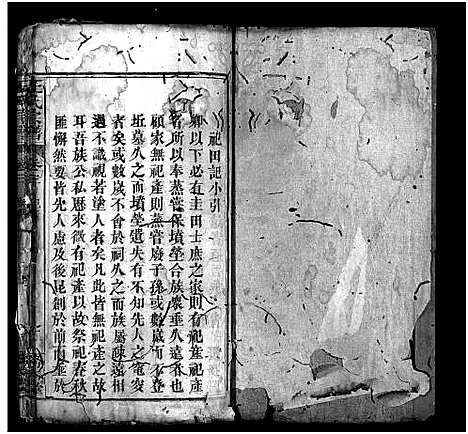 祀田記小引
卿以下必有圭田士庶之家則有祀產祀產
者所以奉蒸嘗保墳塋合族衆垂久遠者也
顧家無祀產則蒸嘗廢子孫或數歲而不登
坵墓久之而墳塋遺失有不知先人之窀穸
者矣或數歲不會於祠久之而族屬疎遠相
遇不識視若塗人者矣凡此皆無祀產之故
耳吾族公私歷來微有祀產以故祭祀春秋
匪懈然要皆先人慮及後昆創於前而垂於